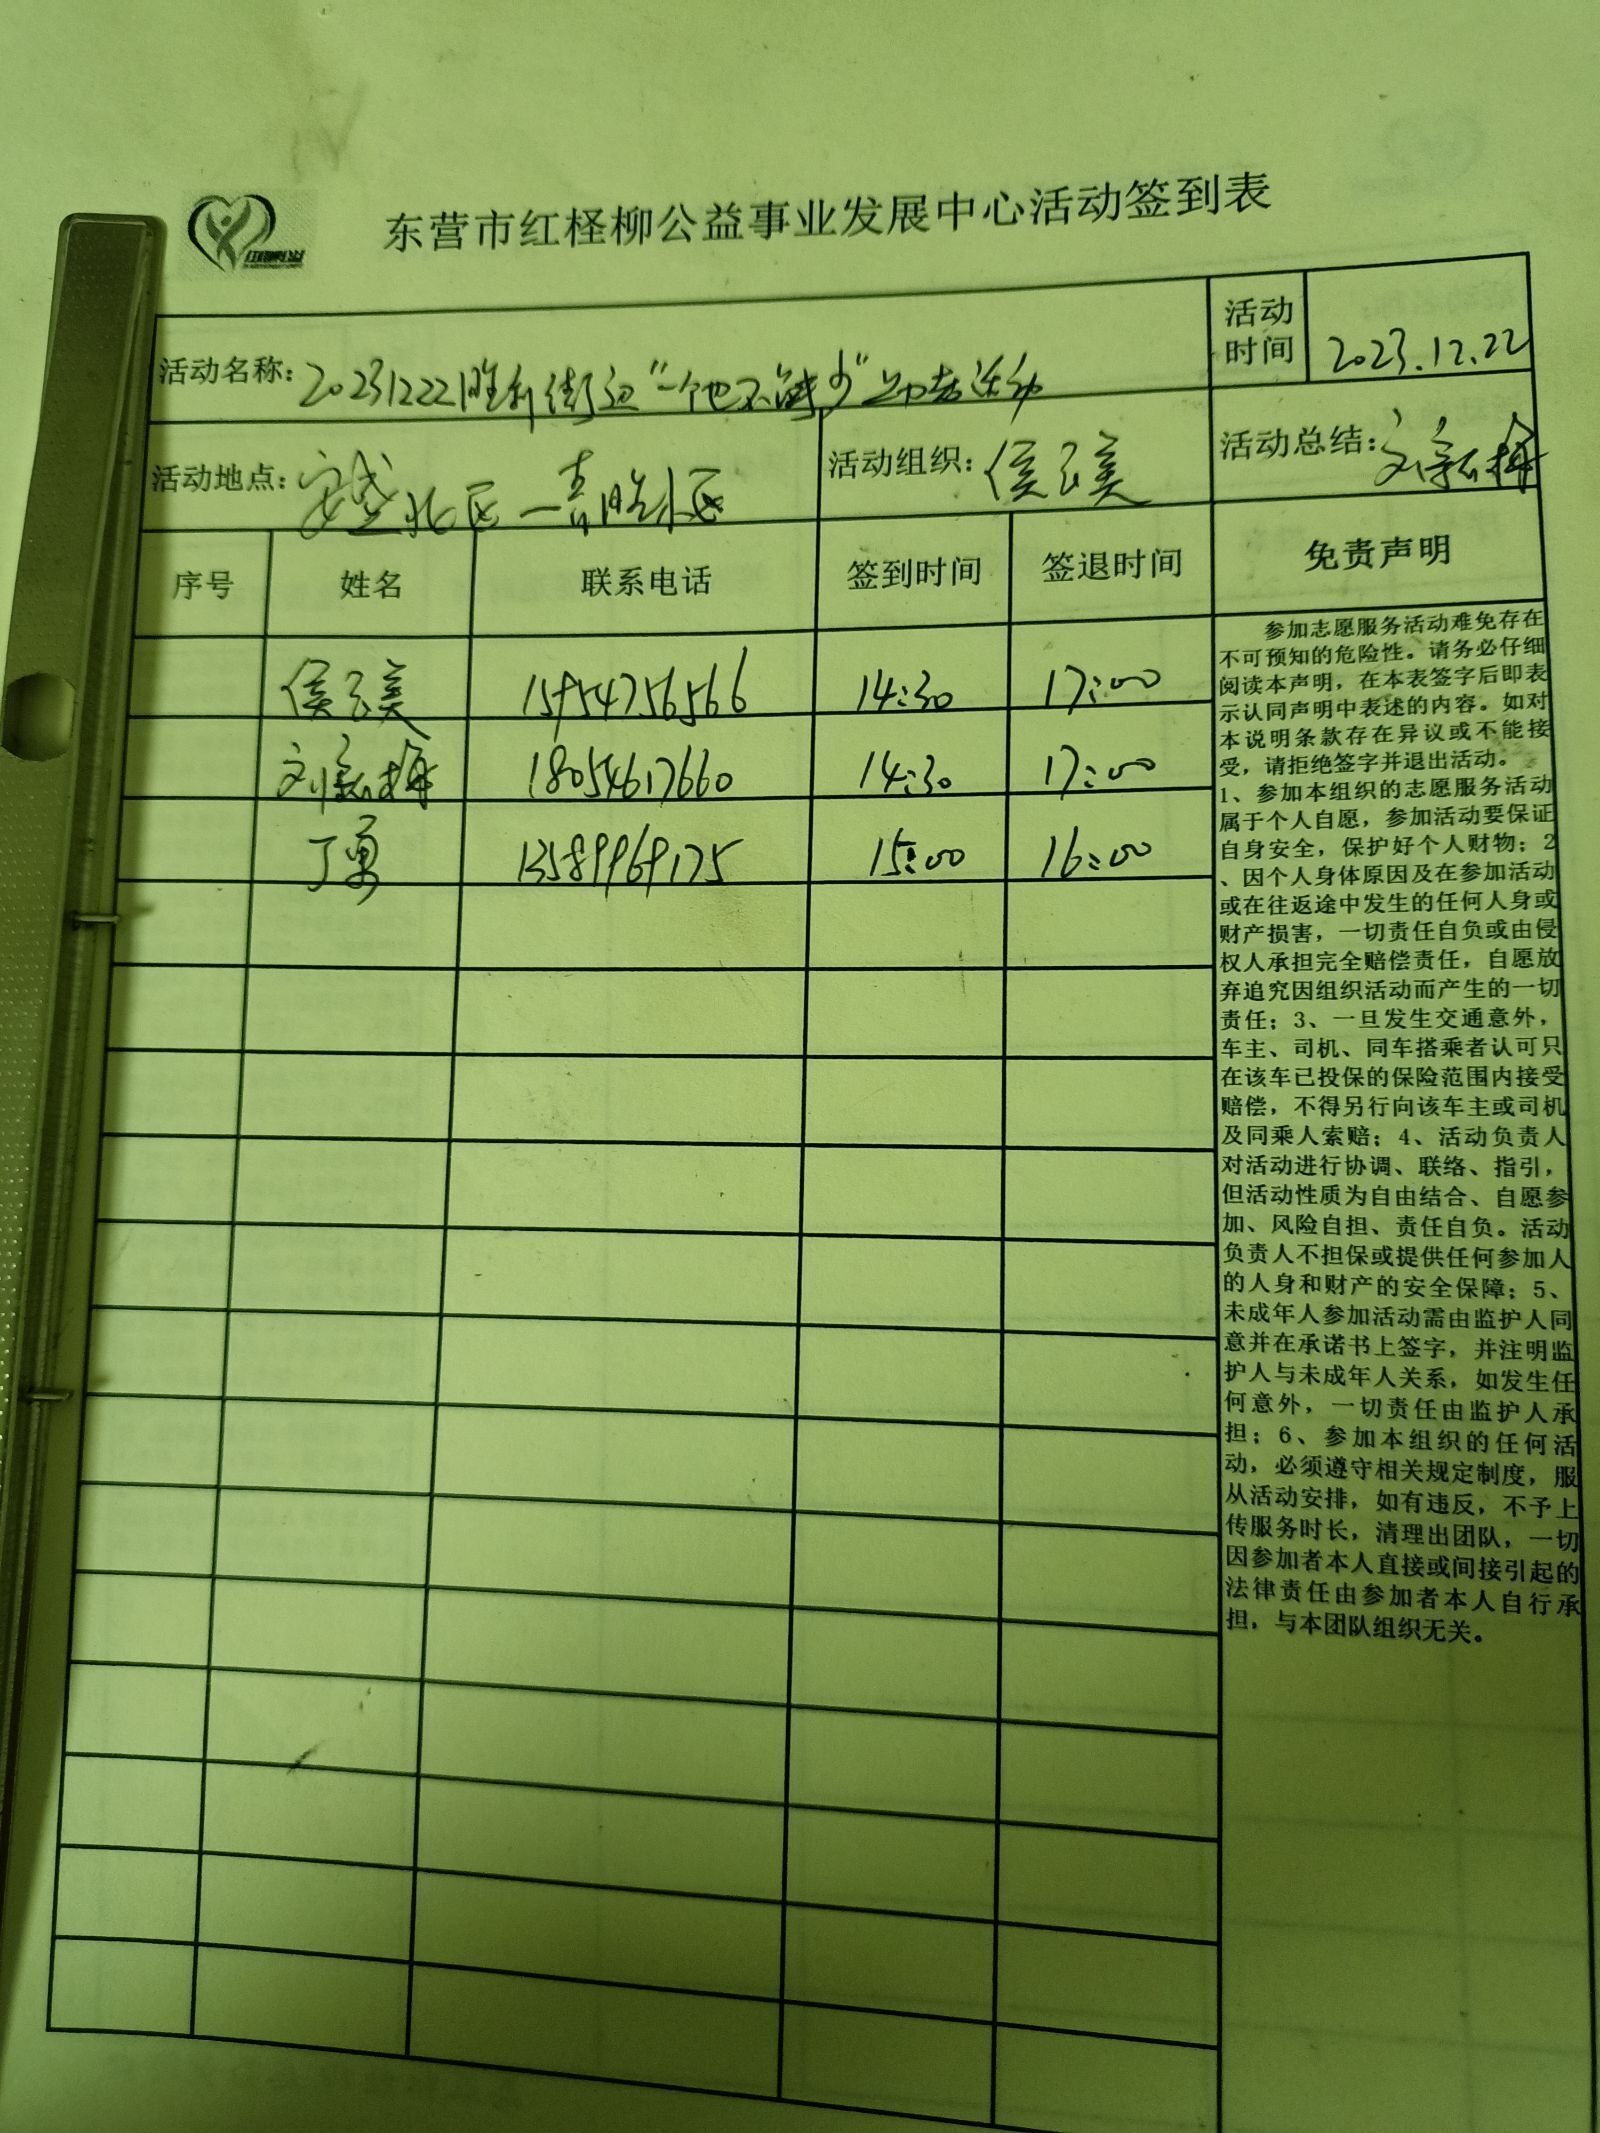 东营市红柽柳公益事业发展中心活动签到表
活动名称：20231222胜利街道“一个也不能少”助老活动
活动时间 2023.12.22
活动地点：安盛北区—喜胜小区
活动组织：侯云美
活动总结：刘 梅
序号 姓名 联系电话 签到时间 签退时间 免责声明
侯云美 15954756566 14:30 17:00
刘 梅 18054617660 14:30 17:00
丁勇 13589969175 15:00 16:00
参加志愿服务活动难免存在
不可预知的危险性。请务必仔细
阅读本声明，在本表签字后即表
示认同声明中表述的内容。如对
本说明条款存在异议或不能接
受，请拒绝签字并退出活动。
1、参加本组织的志愿服务活动
属于个人自愿，参加活动要保证
自身安全，保护好个人财物；2
、因个人身体原因及在参加活动
或在往返途中发生的任何人身或
财产损害，一切责任自负或由侵
权人承担完全赔偿责任，自愿放
弃追究因组织活动而产生的一切
责任；3、一旦发生交通意外，
车主、司机、同车搭乘者认可只
在该车已投保的保险范围内接受
赔偿，不得另行向该车主或司机
及同乘人索赔；4、活动负责人
对活动进行协调、联络、指引，
但活动性质为自由结合、自愿参
加、风险自担、责任自负。活动
负责人不担保或提供任何参加人
的人身和财产的安全保障；5、
未成年人参加活动需由监护人同
意并在承诺书上签字，并注明监
护人与未成年人关系，如发生任
何意外，一切责任由监护人承
担；6、参加本组织的任何活
动，必须遵守相关规定制度，服
从活动安排，如有违反，不予上
传服务时长，清理出团队，一切
因参加者本人直接或间接引起的
法律责任由参加者本人自行承
担，与本团队组织无关。